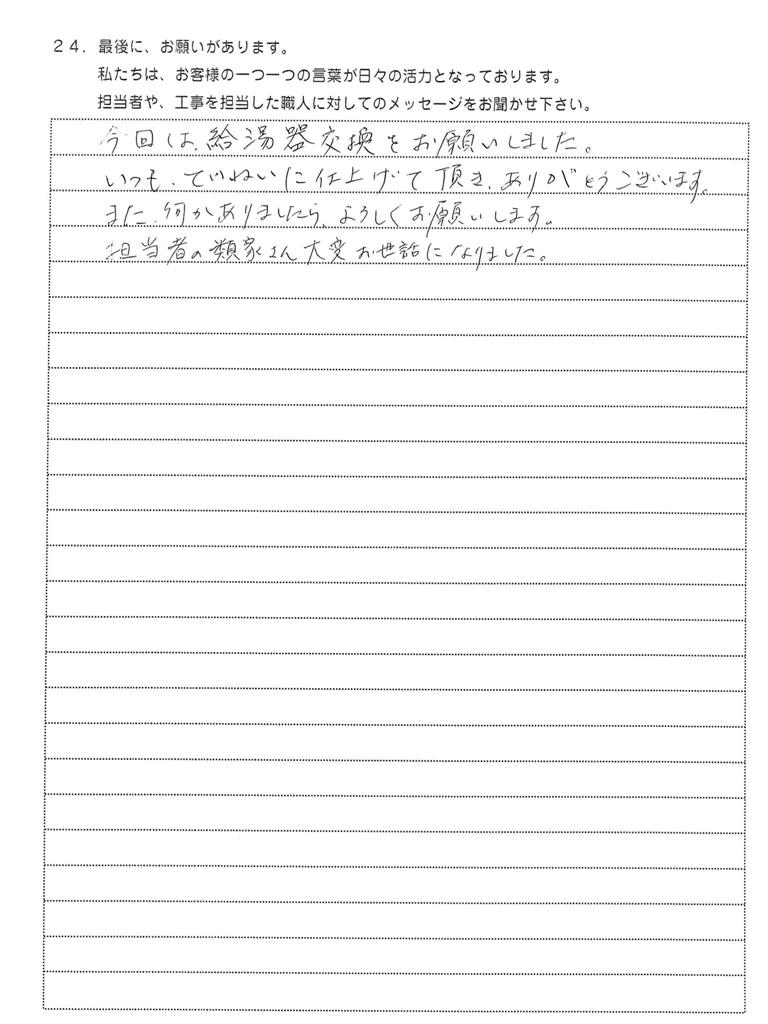 24．最後に、お願いがあります。
私たちは、お客様の一つ一つの言葉が日々の活力となっております。
担当者や、工事を担当した職人に対してのメッセージをお聞かせ下さい。
今回は、給湯器交換をお願いしました。
いつも、ていねいに仕上げて頂き、ありがとうございます。
また、何かありましたら、よろしくお願いします。
担当者の類家さん大変お世話になりました。